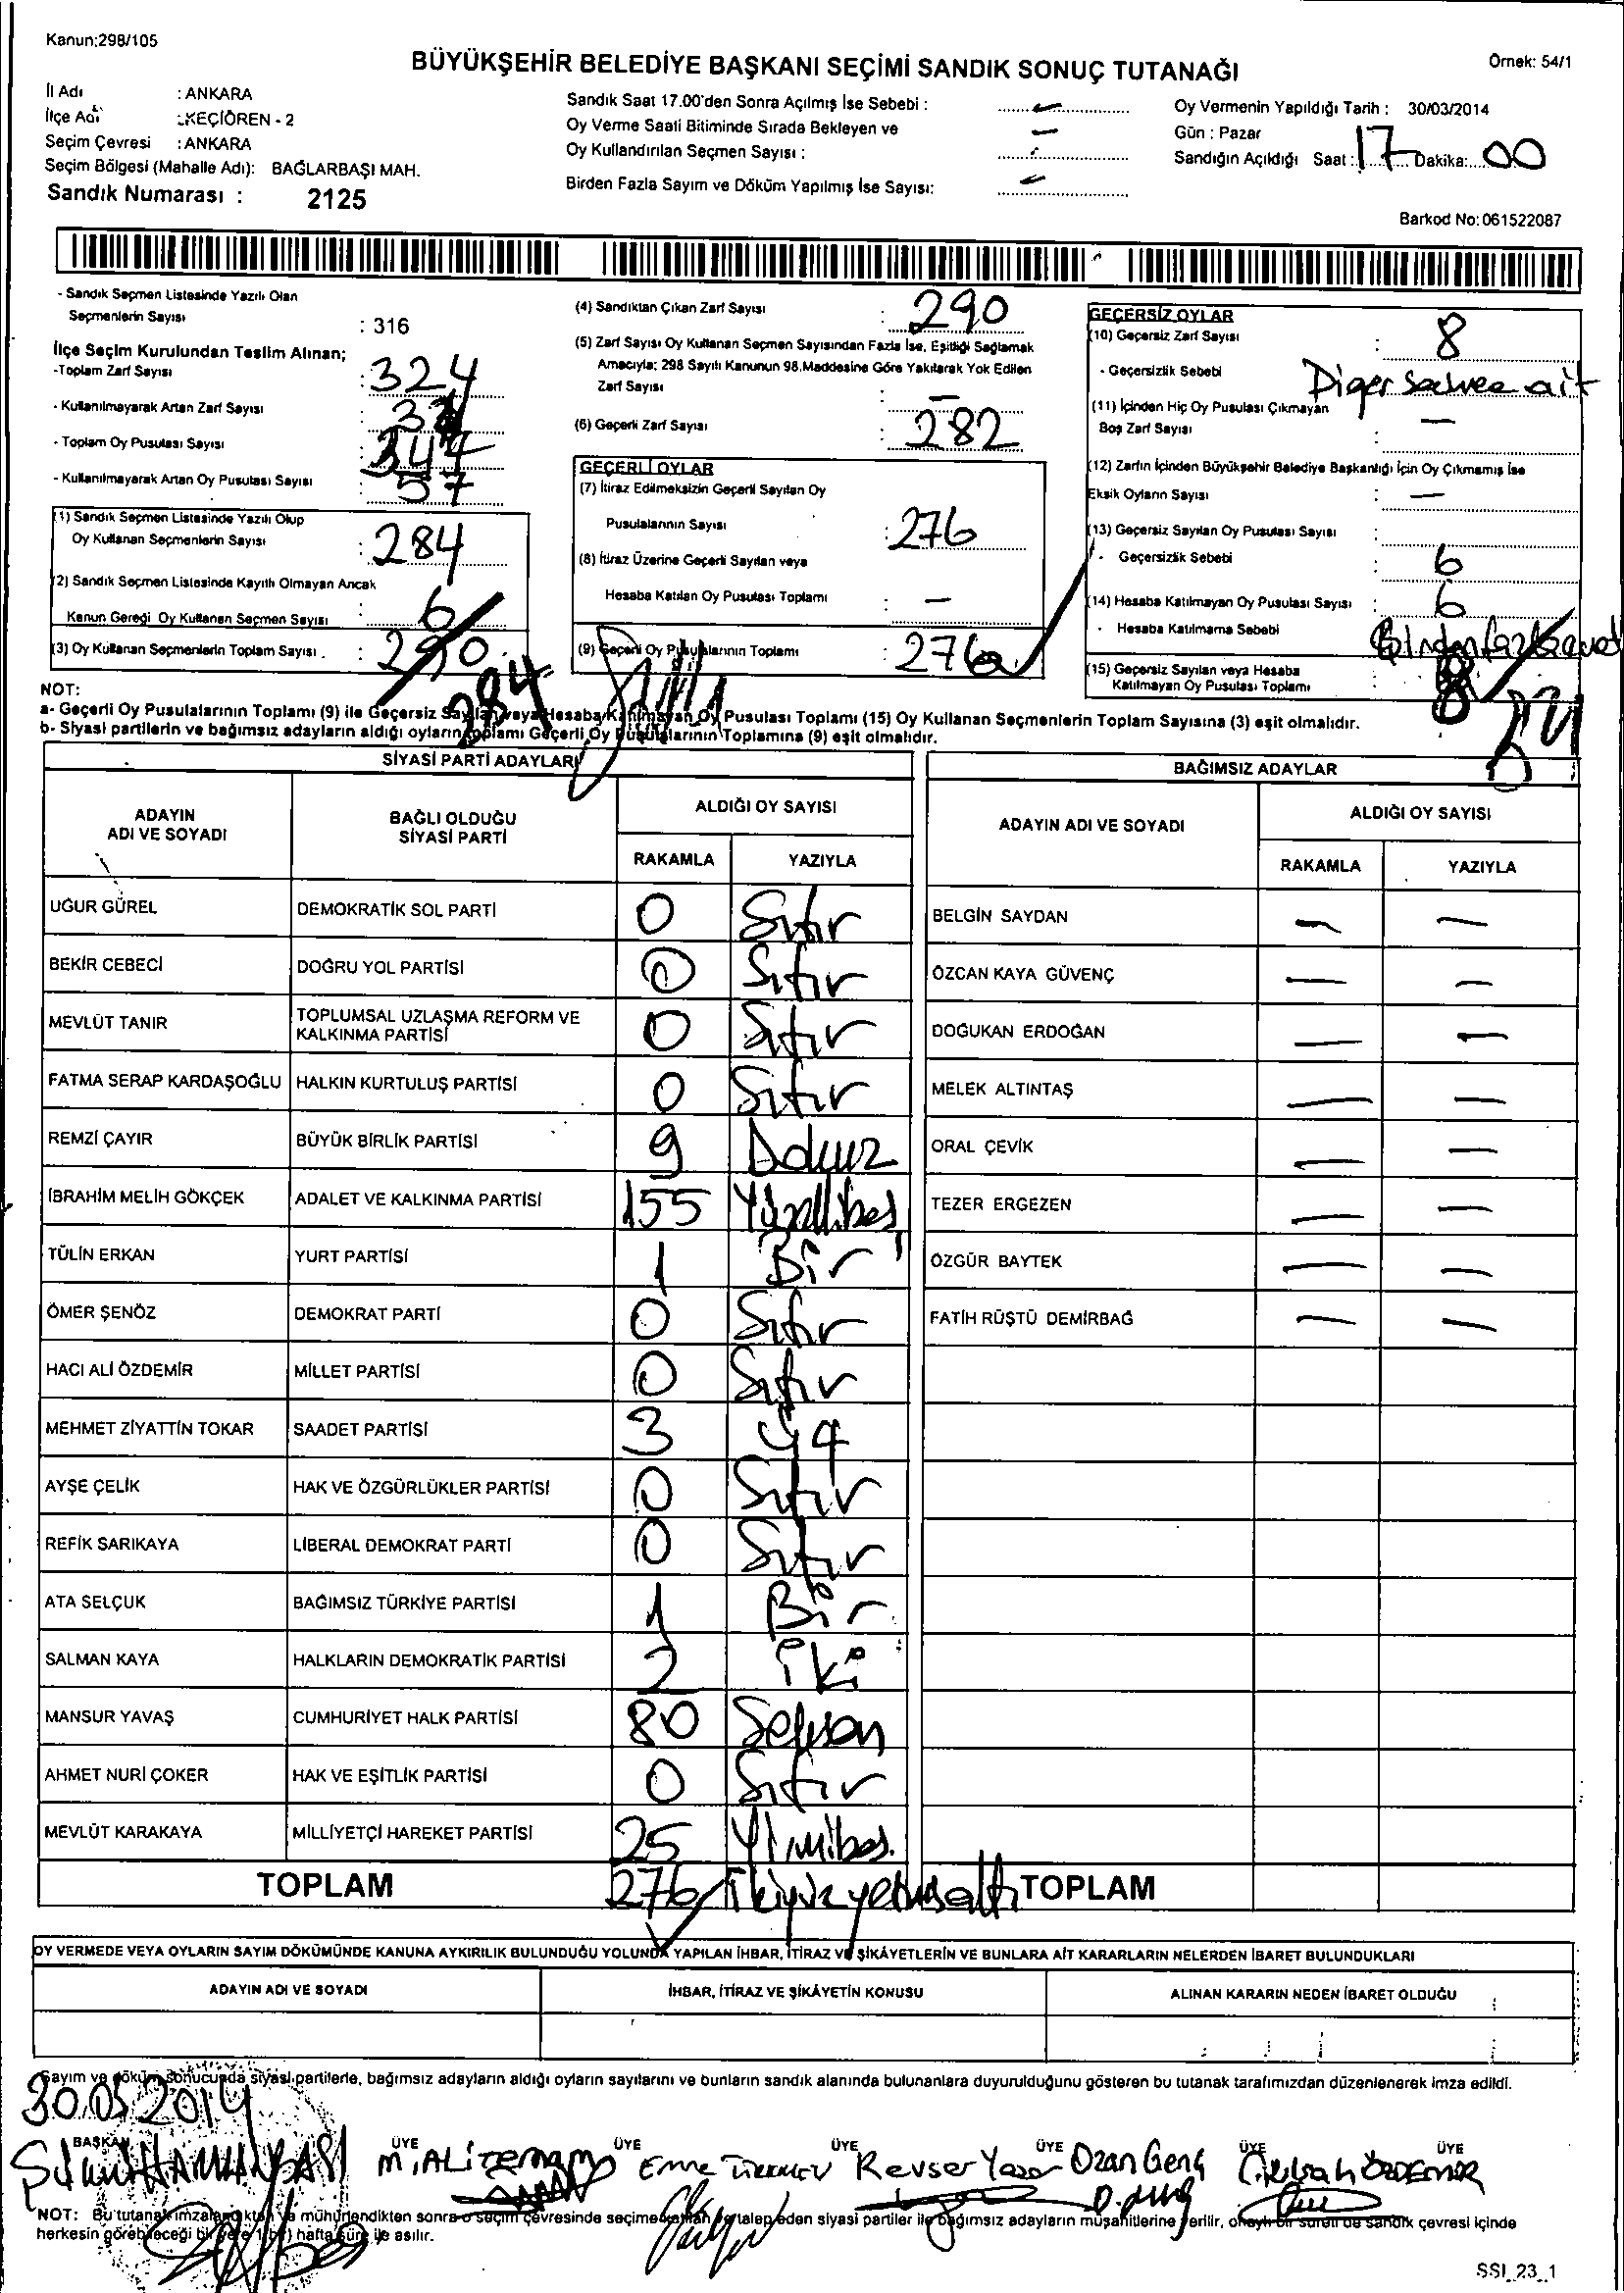 Kanun:298/105
BÜYÜKŞEHİR BELEDİYE BAŞKANI SEÇİMİ SANDIK SONUÇ TUTANAĞI
Örnek: 54/1
İl Adı : ANKARA
İlçe Adı : KEÇİÖREN - 2
Seçim Çevresi : ANKARA
Seçim Bölgesi (Mahalle Adı): BAĞLARBAŞI MAH.
Sandık Numarası : 2125
Sandık Saat 17.00'den Sonra Açılmış İse Sebebi : –
Oy Verme Saati Bitiminde Sırada Bekleyen ve –
Oy Kullandırılan Seçmen Sayısı :
Birden Fazla Sayım ve Döküm Yapılmış İse Sayısı: –
Oy Vermenin Yapıldığı Tarih : 30/03/2014
Gün : Pazar
Sandığın Açıldığı Saat : 17 Dakika: 00
Barkod No: 061522087
- Sandık Seçmen Listesinde Yazılı Olan
Seçmenlerin Sayısı : 316
İlçe Seçim Kurulundan Teslim Alınan;
-Toplam Zarf Sayısı : 324
- Kullanılmayarak Artan Zarf Sayısı :
- Toplam Oy Pusulası Sayısı : 347
- Kullanılmayarak Artan Oy Pusulası Sayısı : 57
(1) Sandık Seçmen Listesinde Yazılı Olup
Oy Kullanan Seçmenlerin Sayısı : 284
(2) Sandık Seçmen Listesinde Kayıtlı Olmayan Ancak
Kanun Gereği Oy Kullanan Seçmen Sayısı : 6
(3) Oy Kullanan Seçmenlerin Toplam Sayısı . : 290
284
(4) Sandıktan Çıkan Zarf Sayısı : 290
(5) Zarf Sayısı Oy Kullanan Seçmen Sayısından Fazla İse, Eşitliği Sağlamak
Amacıyla; 298 Sayılı Kanunun 98.Maddesine Göre Yakılarak Yok Edilen
Zarf Sayısı : –
(6) Geçerli Zarf Sayısı : 282
GEÇERLİ OYLAR
(7) İtiraz Edilmeksizin Geçerli Sayılan Oy
Pusulalarının Sayısı : 276
(8) İtiraz Üzerine Geçerli Sayılan veya
Hesaba Katılan Oy Pusulası Toplamı : –
(9) Geçerli Oy Pusulalarının Toplamı : 276
GEÇERSİZ OYLAR
(10) Geçersiz Zarf Sayısı : 8
- Geçersizlik Sebebi Diger ait
(11) İçinden Hiç Oy Pusulası Çıkmayan
Boş Zarf Sayısı : –
(12) Zarfın İçinden Büyükşehir Belediye Başkanlığı İçin Oy Çıkmamış İse
Eksik Oyların Sayısı : –
(13) Geçersiz Sayılan Oy Pusulası Sayısı :
- Geçersizlik Sebebi : 6
(14) Hesaba Katılmayan Oy Pusulası Sayısı : 6
- Hesaba Katılmama Sebebi
(15) Geçersiz Sayılan veya Hesaba
Katılmayan Oy Pusulası Toplamı : 8
NOT:
a- Geçerli Oy Pusulalarının Toplamı (9) ile Geçersiz Sayılan veya Hesaba Katılmayan Oy Pusulası Toplamı (15) Oy Kullanan Seçmenlerin Toplam Sayısına (3) eşit olmalıdır.
b- Siyasi partilerin ve bağımsız adayların aldığı oyların toplamı Geçerli Oy Pusulalarının Toplamına (9) eşit olmalıdır.
SİYASİ PARTİ ADAYLARI
BAĞIMSIZ ADAYLAR
ADAYIN ADI VE SOYADI
BAĞLI OLDUĞU SİYASİ PARTİ
ALDIĞI OY SAYISI
RAKAMLA YAZIYLA
ADAYIN ADI VE SOYADI
ALDIĞI OY SAYISI
RAKAMLA YAZIYLA
UĞUR GÜREL DEMOKRATİK SOL PARTİ 0 Sıfır BELGİN SAYDAN – –
BEKİR CEBECİ DOĞRU YOL PARTİSİ 0 Sıfır ÖZCAN KAYA GÜVENÇ – –
MEVLÜT TANIR TOPLUMSAL UZLAŞMA REFORM VE KALKINMA PARTİSİ 0 Sıfır DOĞUKAN ERDOĞAN – –
FATMA SERAP KARDAŞOĞLU HALKIN KURTULUŞ PARTİSİ 0 Sıfır MELEK ALTINTAŞ – –
REMZİ ÇAYIR BÜYÜK BİRLİK PARTİSİ 9 Dokuz ORAL ÇEVİK – –
İBRAHİM MELİH GÖKÇEK ADALET VE KALKINMA PARTİSİ 155 Yüzellibeş TEZER ERGEZEN – –
TÜLİN ERKAN YURT PARTİSİ 1 Bir ÖZGÜR BAYTEK – –
ÖMER ŞENÖZ DEMOKRAT PARTİ 0 Sıfır FATİH RÜŞTÜ DEMİRBAĞ – –
HACI ALİ ÖZDEMİR MİLLET PARTİSİ 0 Sıfır
MEHMET ZİYATTİN TOKAR SAADET PARTİSİ 3 Üç
AYŞE ÇELİK HAK VE ÖZGÜRLÜKLER PARTİSİ 0 Sıfır
REFİK SARIKAYA LİBERAL DEMOKRAT PARTİ 0 Sıfır
ATA SELÇUK BAĞIMSIZ TÜRKİYE PARTİSİ 1 Bir
SALMAN KAYA HALKLARIN DEMOKRATİK PARTİSİ 2 iki
MANSUR YAVAŞ CUMHURİYET HALK PARTİSİ 80 Seksen
AHMET NURİ ÇOKER HAK VE EŞİTLİK PARTİSİ 0 Sıfır
MEVLÜT KARAKAYA MİLLİYETÇİ HAREKET PARTİSİ 25 Yirmibeş.
TOPLAM 276 İkiyüzyetmişaltı TOPLAM
OY VERMEDE VEYA OYLARIN SAYIM DÖKÜMÜNDE KANUNA AYKIRILIK BULUNDUĞU YOLUNDA YAPILAN İHBAR, İTİRAZ VE ŞİKÂYETLERİN VE BUNLARA AİT KARARLARIN NELERDEN İBARET BULUNDUKLARI
ADAYIN ADI VE SOYADI İHBAR, İTİRAZ VE ŞİKÂYETİN KONUSU ALINAN KARARIN NEDEN İBARET OLDUĞU
Sayım ve döküm sonucunda siyasi partilerle, bağımsız adayların aldığı oyların sayılarını ve bunların sandık alanında bulunanlara duyurulduğunu gösteren bu tutanak tarafımızdan düzenlenerek imza edildi.
30.03.2014
BAŞKAN ÜYE ÜYE ÜYE ÜYE ÜYE ÜYE
M. ALİ Emre Revser Yazar Ozan Genç ÖZDEMİR
NOT: Bu tutanak imzalandıktan ve mühürlendikten sonra o seçim çevresinde seçime katılan ve talep eden siyasi partiler ile bağımsız adayların müşahitlerine verilir, onaylı bir sureti de sandık çevresi içinde
herkesin görebileceği bir yere 1 (bir) hafta süre ile asılır.
SSI_23_1